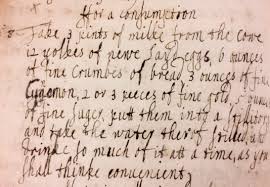 ffor a consumption
Take 3 pints of milke from the cowe
12 yolkes of newe layd eggs, 6 ounces
of fine Crumbes of bread 3 ounces of fine
Cynemon, 2 or 3 peeces of fine gold, ounces
of fine suger, put them into a
and take the water therof
drinke so much of it att a time, as you
shall thinke convenient